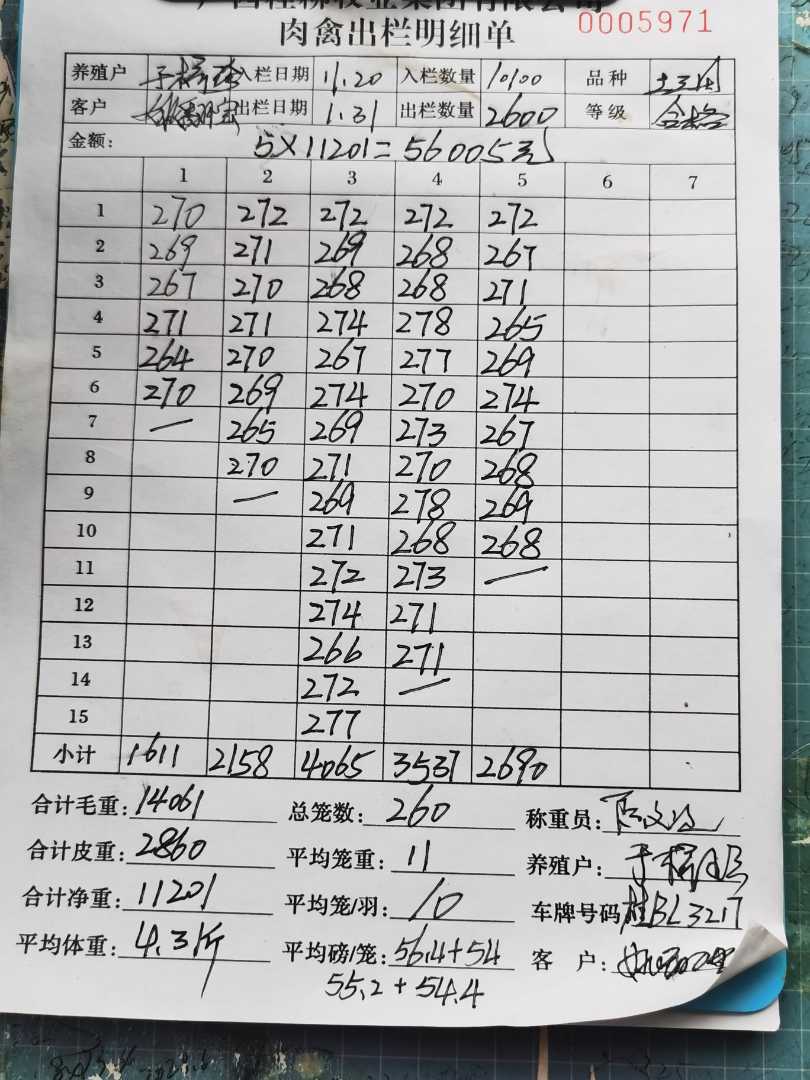 肉禽出栏明细单
0005971
养殖户 入栏日期 11.20 入栏数量 10100 品种
客户 出栏日期 1.31 出栏数量 2600 等级 合格
金额: 5×11201=56005元
1 2 3 4 5 6 7
1 270 272 272 272 272
2 269 271 269 268 267
3 267 270 268 268 271
4 271 271 274 278 265
5 264 270 267 277 269
6 270 269 274 270 274
7 — 265 269 273 267
8 270 271 270 268
9 — 269 278 269
10 271 268 268
11 272 273 —
12 274 271
13 266 271
14 272 —
15 277
小计 1611 2158 4065 3537 2690
合计毛重: 14061 总笼数: 260 称重员:
合计皮重: 2860 平均笼重: 11 养殖户:
合计净重: 11201 平均笼/羽: 10 车牌号码 桂BL3217
平均体重: 4.3斤 平均磅/笼: 56.4+54 客 户:
55.2+54.4